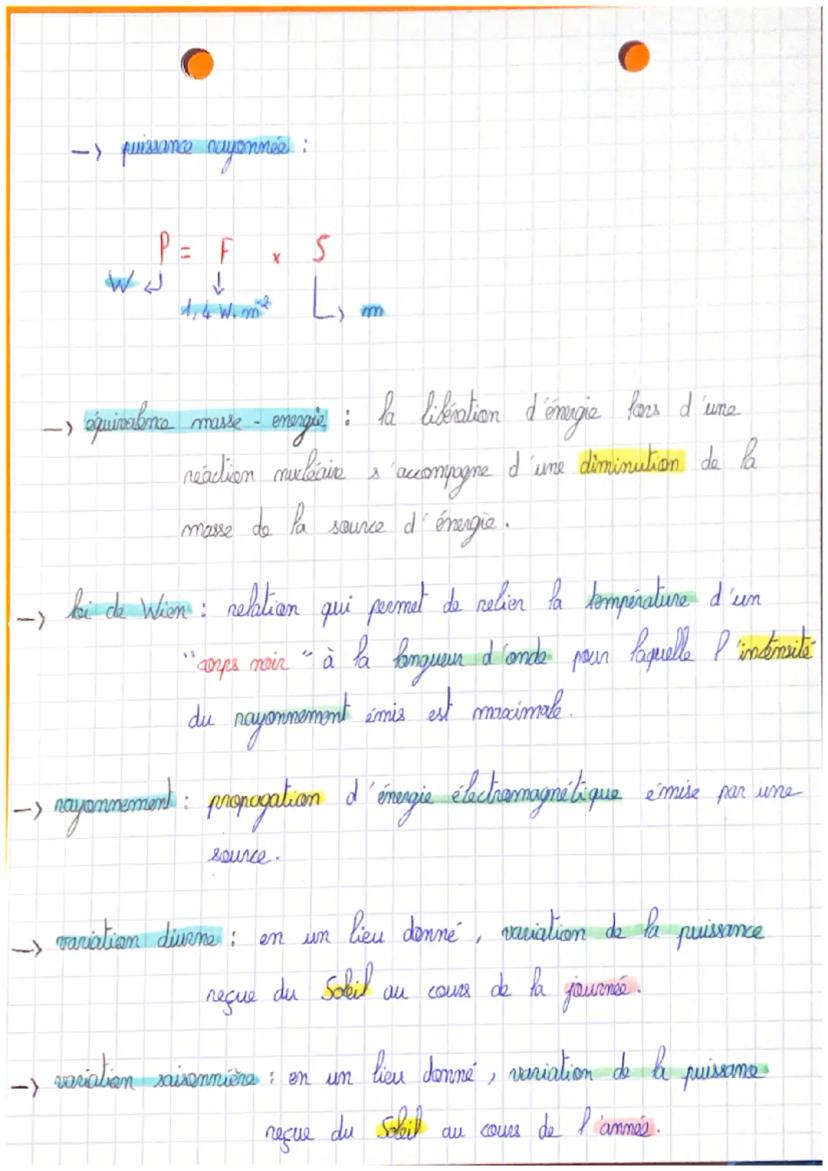 -> puissance rayonnée :
P = F x S
W
1,4 W.m⁻²
m
-> équivalence masse - energie : la libération d'énergie lors d'une
réaction nucléaire s'accompagne d'une diminution de la
masse de la source d'énergie.
-> loi de Wien : relation qui permet de relier la température d'un
"corps noir" à la longueur d'onde pour laquelle l'intensité
du rayonnement émis est maximale.
-> rayonnement : propagation d'énergie électromagnétique émise par une
source.
-> variation diurne : en un lieu donné, variation de la puissance
reçue du Soleil au cours de la journée.
-> variation saisonnière : en un lieu donné, variation de la puissance
reçue du Soleil au cours de l'année.